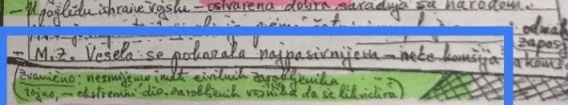 - U pogledu ishrane vojske - ostvarena dobra saradnja sa narodom.
- M.Z. Vesela se pokazala najpasivnijom - neće komšija
odmah
zapos
(zvanično: nesmijemo imat civilnih zarobljenika
tajno, - ekstremni dio zarobljenih vojnika da se likvidira)